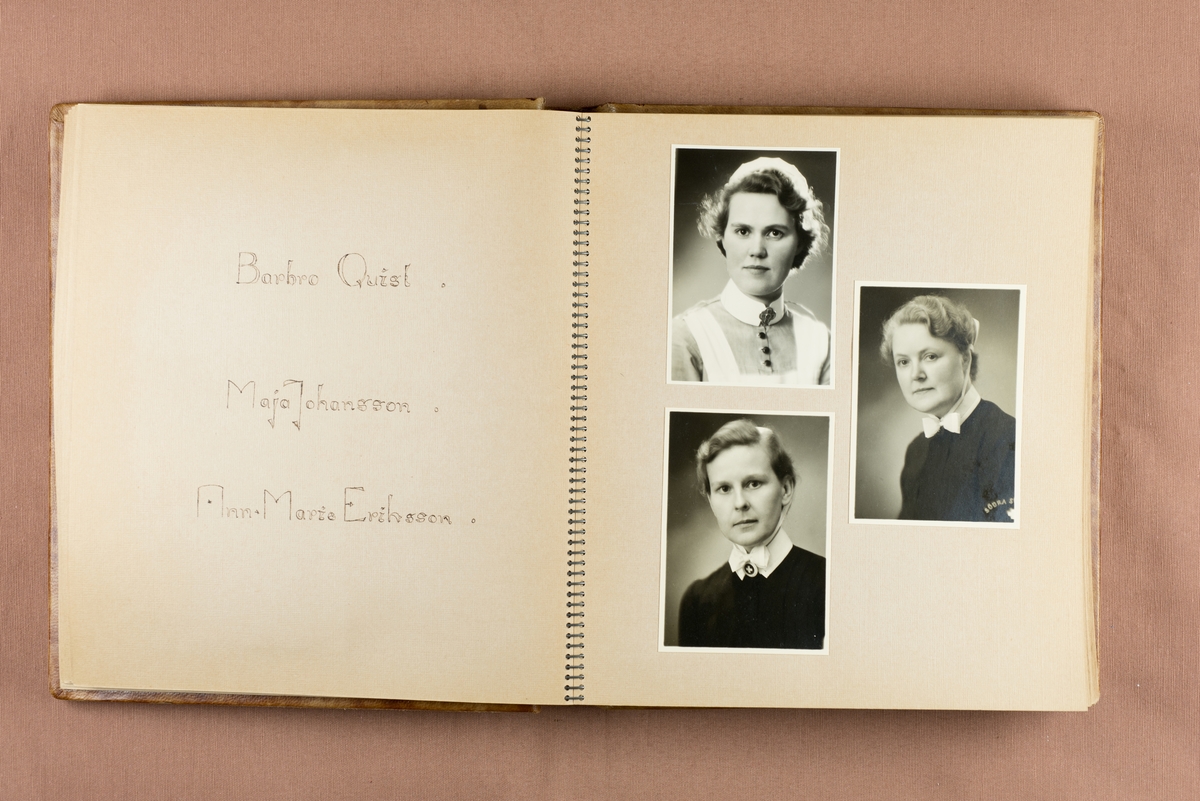 Barbro Quist .
Maja Johansson .
Ann-Marie Eriksson .
SÖDRA